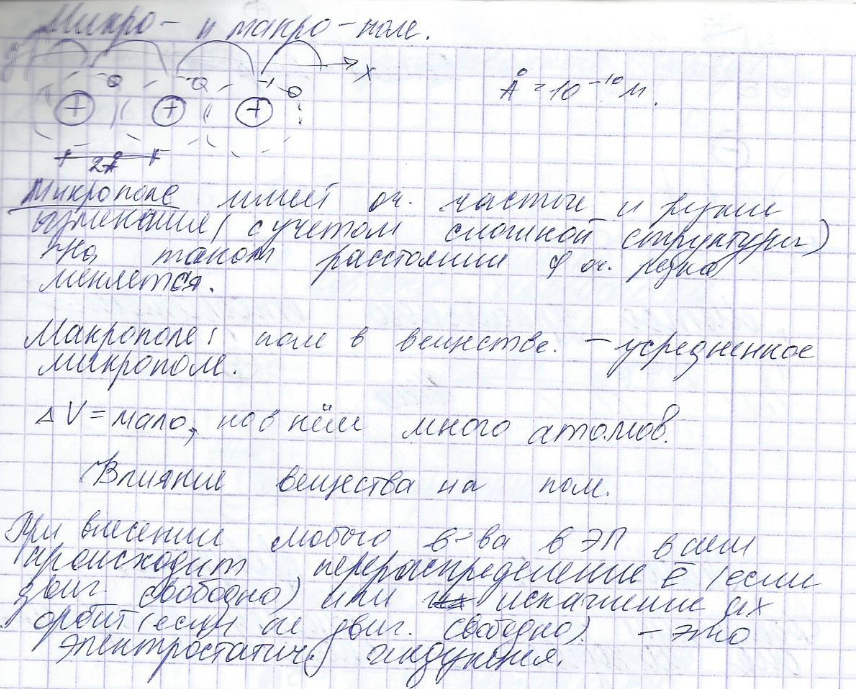 Микро- и макро-поле.
φ
x
Å = 10⁻¹⁰ м.
+ + +
2Å
Микрополе имеет оч. частые и резкие
изменения (с учетом сложной структуры)
на таком расстоянии φ оч. резко
меняется.
Макрополе: поле в веществе. – усредненное
микрополе.
ΔV = мало, но в нём много атомов.
Влияние вещества на поле.
При внесении любого в-ва в ЭП в нем
происходит перераспределение ē (если
двиг. свободно) или искажение их
орбит (если не двиг. свободно) – это
электростатич. индукция.